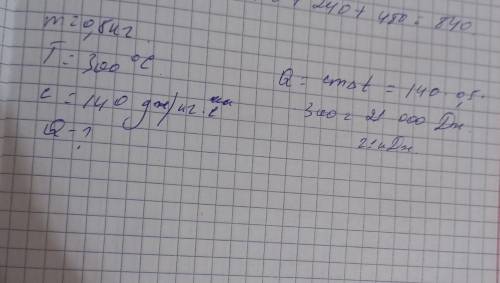 + 240 + 480 = 840
m = 0,5 кг
T = 300 °C
c = 140 дж/кг
Q - ?
Q = cmΔt = 140 · 0,5 ·
300 = 21 000 Дж
21 кДж